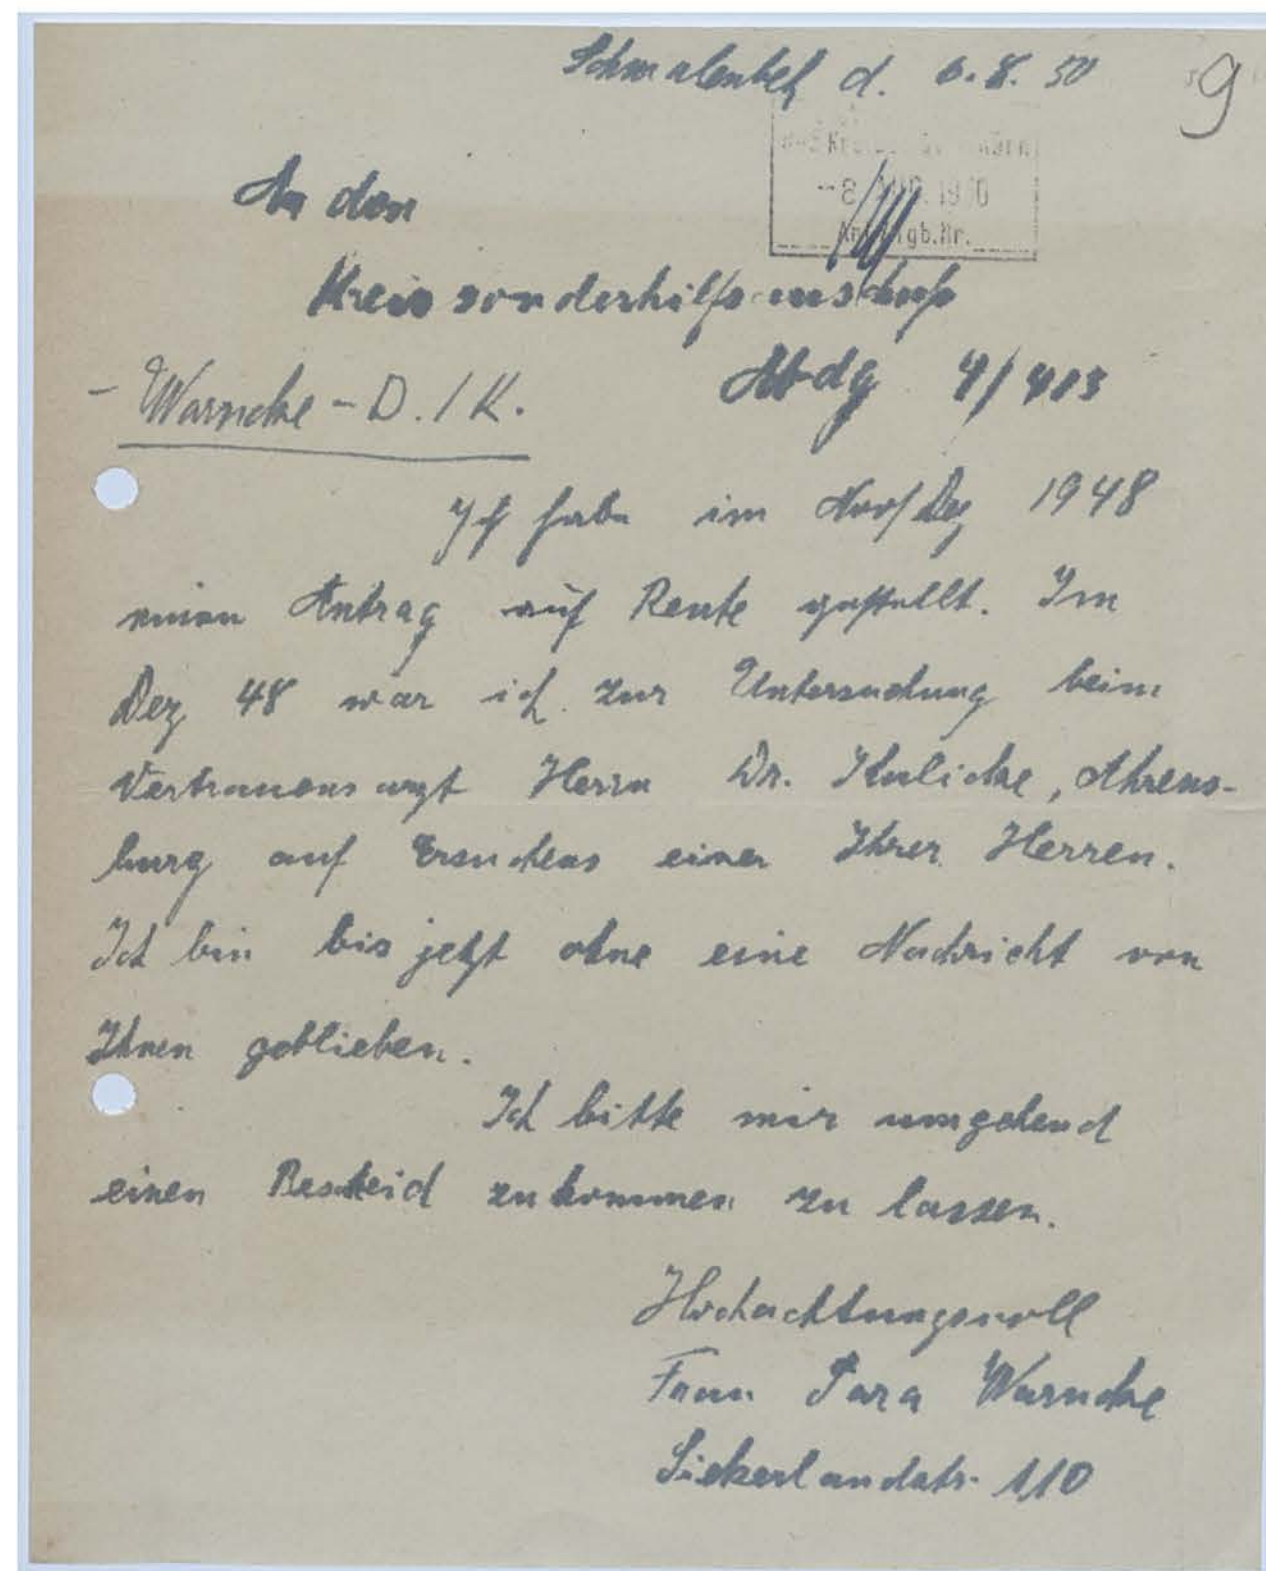 Schmalenbek d. 6.8.50
9
-8. AUG. 1950
Tgb.Nr.
An den
Kreissonderhilfsausschuß
Abdg 4/413
- Warncke - D. / K.
Ich habe im Nov/Dez 1948
einen Antrag auf Rente gestellt. Im
Dez 48 war ich zur Untersuchung beim
Vertrauensarzt Herrn Dr. Kulicke, Ahrens-
burg auf Ersuchens einer Ihrer Herren.
Ich bin bis jetzt ohne eine Nachricht von
Ihnen geblieben.
Ich bitte mir umgehend
einen Bescheid zukommen zu lassen.
Hochachtungsvoll
Frau Warncke
Siekerlandstr. 110